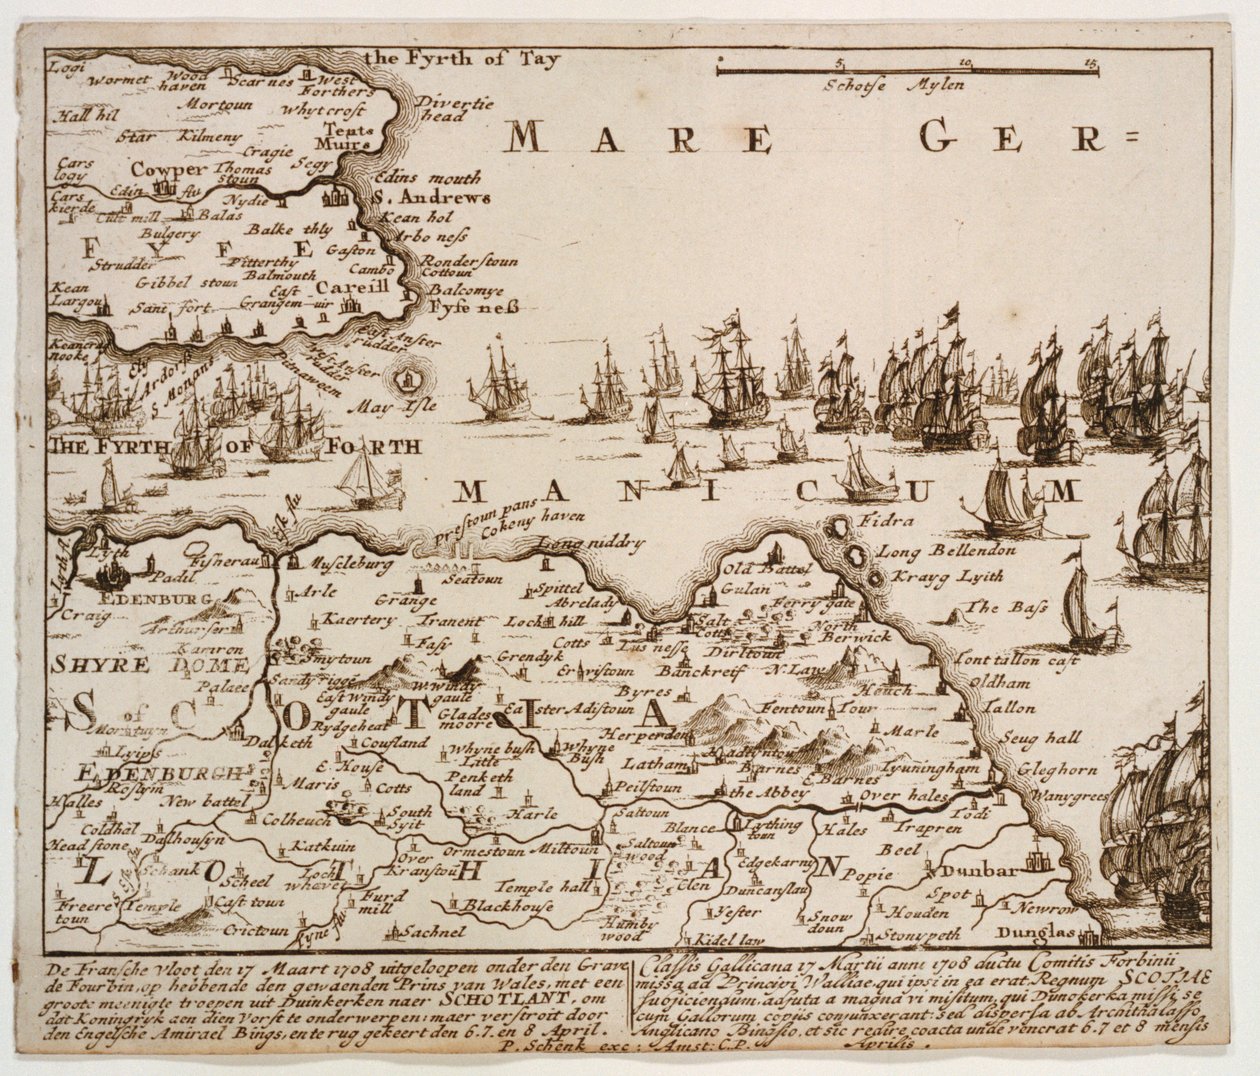 the Fyrth of Tay
5 10 15
Schotse Mylen
Logi
Wormet
Wood haven
Scarnes
West Forthers
Divertie head
Hall hil
Mortoun
Whytcrost
Star
Kilmeny
Tents Muirs
MARE GER=
Cragie
Segy
Cars logy
Cowper
Thomas stoun
Edins mouth
Edin flu
Nydie
S. Andrews
Cars kierde
Cult mill
Balas
Kean hol
Bulgery
Balke thly
Arbo neſs
FYFE
Gaston
Ronderstoun
Strudder
Pitterthy
Cambo
Cottoun
Kean
Gibbel stoun
Balmouth
Careill
Balcomye
Largou
Sant fort
East
Grangem-uir
Fyfe neß
Keancra nooke
Ely
Ardorſs
S. Monans
Pitnaweem
May-Iſle
THE FYRTH OF FORTH
MANICUM
Esk flu
prestoun pans
Cokeny haven
Fidra
Long niddry
Long Bellendon
Lyth
Fysherau
Musleburg
Old Battel
Krayg Lyith
Padil
Seatoun
Spittel
Gulan
EDENBURG
Arle
Grange
Abrelady
Ferry gate
The Baſs
Craig
Arthurſer
Kaertery
Tranent
Loch hill
Salt Cotts
North Berwick
Kariron
Faſy
Cotts
Lus neſſe
Dirltoun
SHYRE DOME
Smytoun
Grendyk
Banckreif
N. Law
Tontallon cast
Palaee
Sandy rigge
W. Windy gaule
Byres
Houch
Oldham
SCOTIA
of
East Windy gaule
Glades moore
Adistoun
Fentoun
Tour
Tallon
Rydgeheat
Herperden
Marle
Seug hall
Lyips
Dalketh
Cousland
Whyne bush
Whyne Bush
EDENBURGH
E House
Litte
Penketh land
Latham
Barnes
E Barnes
Lyuningham
Gleghorn
Roslym
Maris
Cotts
Peilstoun
the Abbey
Over hales
Wanygrees
Halles
New battel
South Syit
Harle
Saltoun
Todi
Coldhal
Colheuch
Blance
Lything toun
Hales
Trapren
Head stone
Dalhousyn
Katkuin
Over Kranstoun
Ormestoun
Miltoun
Saltoun wood
Beel
LOTHIAN
Schank
Scheel
Loch whaver
Edgekarny
Popie
Dunbar
Temple hall
Clen
Duncanslau
Spot
Freere toun
Temple
Cast toun
Furd mill
Blackhouse
Yester
Snow doun
Houden
Newrow
Crictoun
Tyne flu
Sachnel
Humby wood
Kidel law
Stonypeth
Dunglas
De Franſche vloot den 17 Maart 1708 uitgeloopen onder den Grave
de Fourbin, op hebbende den gewaenden Prins van Wales, met een
groote meenigte troepen uit Duinkerken naer SCHOTLANT, om
dat Koningryk aen dien Vorst te onderwerpen: maer verstroit door
den Engelſche Amirael Bings, en te rug gekeert den 6. 7. en 8 April.
Claſſis Gallicana 17 Martii anni 1708 ductu Comitis Forbinii
miſſa, ad Principi Walliae, qui ipſi in ea erat, Regnum SCOTIAE
ſubjiciendum, adjuta a magna vi militum, qui Dunokerka miſſi, se
cum Gallorum copiis conjunxerant: sed dispersa ab Archithalaſſo
Anglicano Bingſio, et sic redire coacta unde venerat 6. 7 et 8 mensis
Aprilis.
P. Schenk exc: Amst: C.P.